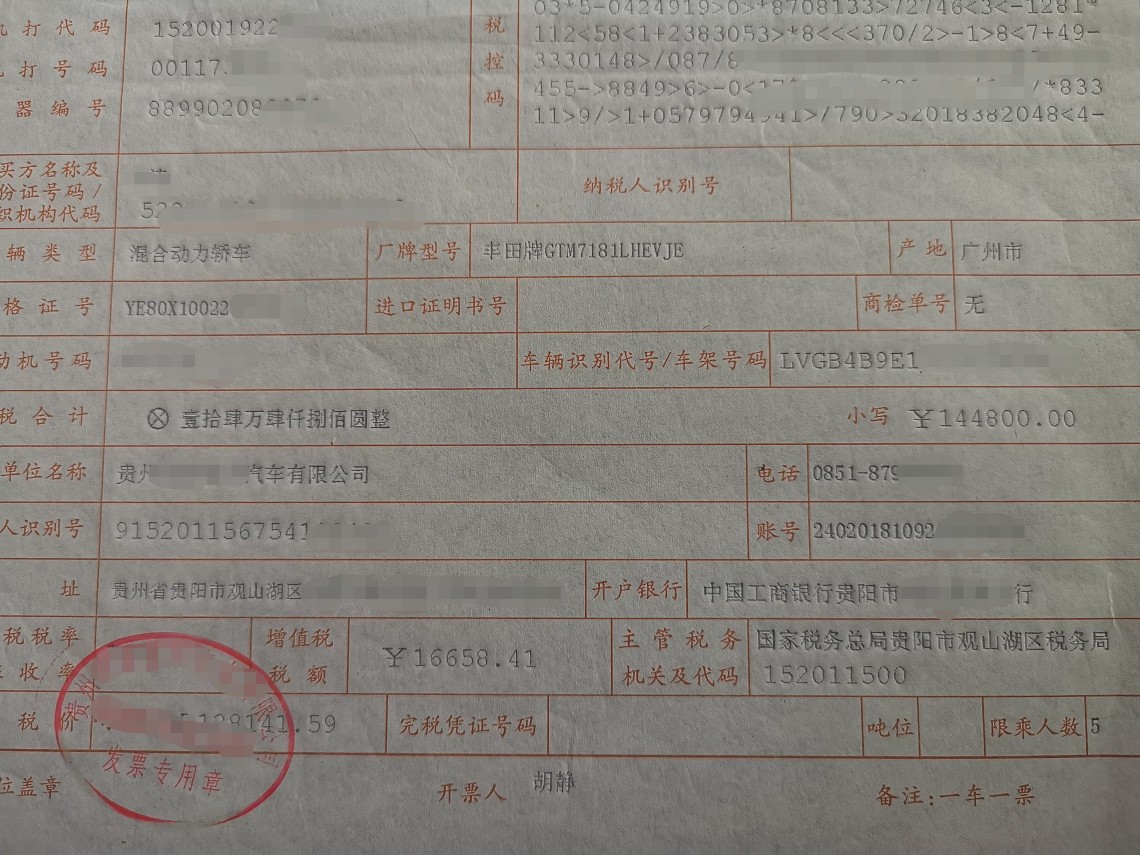 机打代码 152001922
税控码
03*5-0424919>0>*8708133>72746<3<-1281*
112<58<1+2383053>*8<<<370/2>-1>8<7+49-
机打号码 00117
3330148>/087/
器编号 88990208
455->8849>6>-0<17 /*833
11>9/>1+0579794 41>/790>32018382048<4-
买方名称及
份证号码/
织机构代码 52
纳税人识别号
辆类型 混合动力轿车 厂牌型号 丰田牌GTM7181LHEVJE 产地 广州市
格证号 YE80X10022 进口证明书号 商检单号 无
动机号码 车辆识别代号/车架号码 LVGB4B9E1
税合计 ⊗ 壹拾肆万肆仟捌佰圆整 小写 ¥144800.00
单位名称 贵州 汽车有限公司 电话 0851-879
人识别号 9152011567541 账号 24020181092
址 贵州省贵阳市观山湖区 开户银行 中国工商银行贵阳市 行
税税率 增值税 主管税务 国家税务总局贵阳市观山湖区税务局
收率 税额 ¥16658.41 机关及代码 152011500
税价 128141.59 完税凭证号码 吨位 限乘人数 5
贵州 限公司
发票专用章
位盖章 开票人 胡静 备注:一车一票